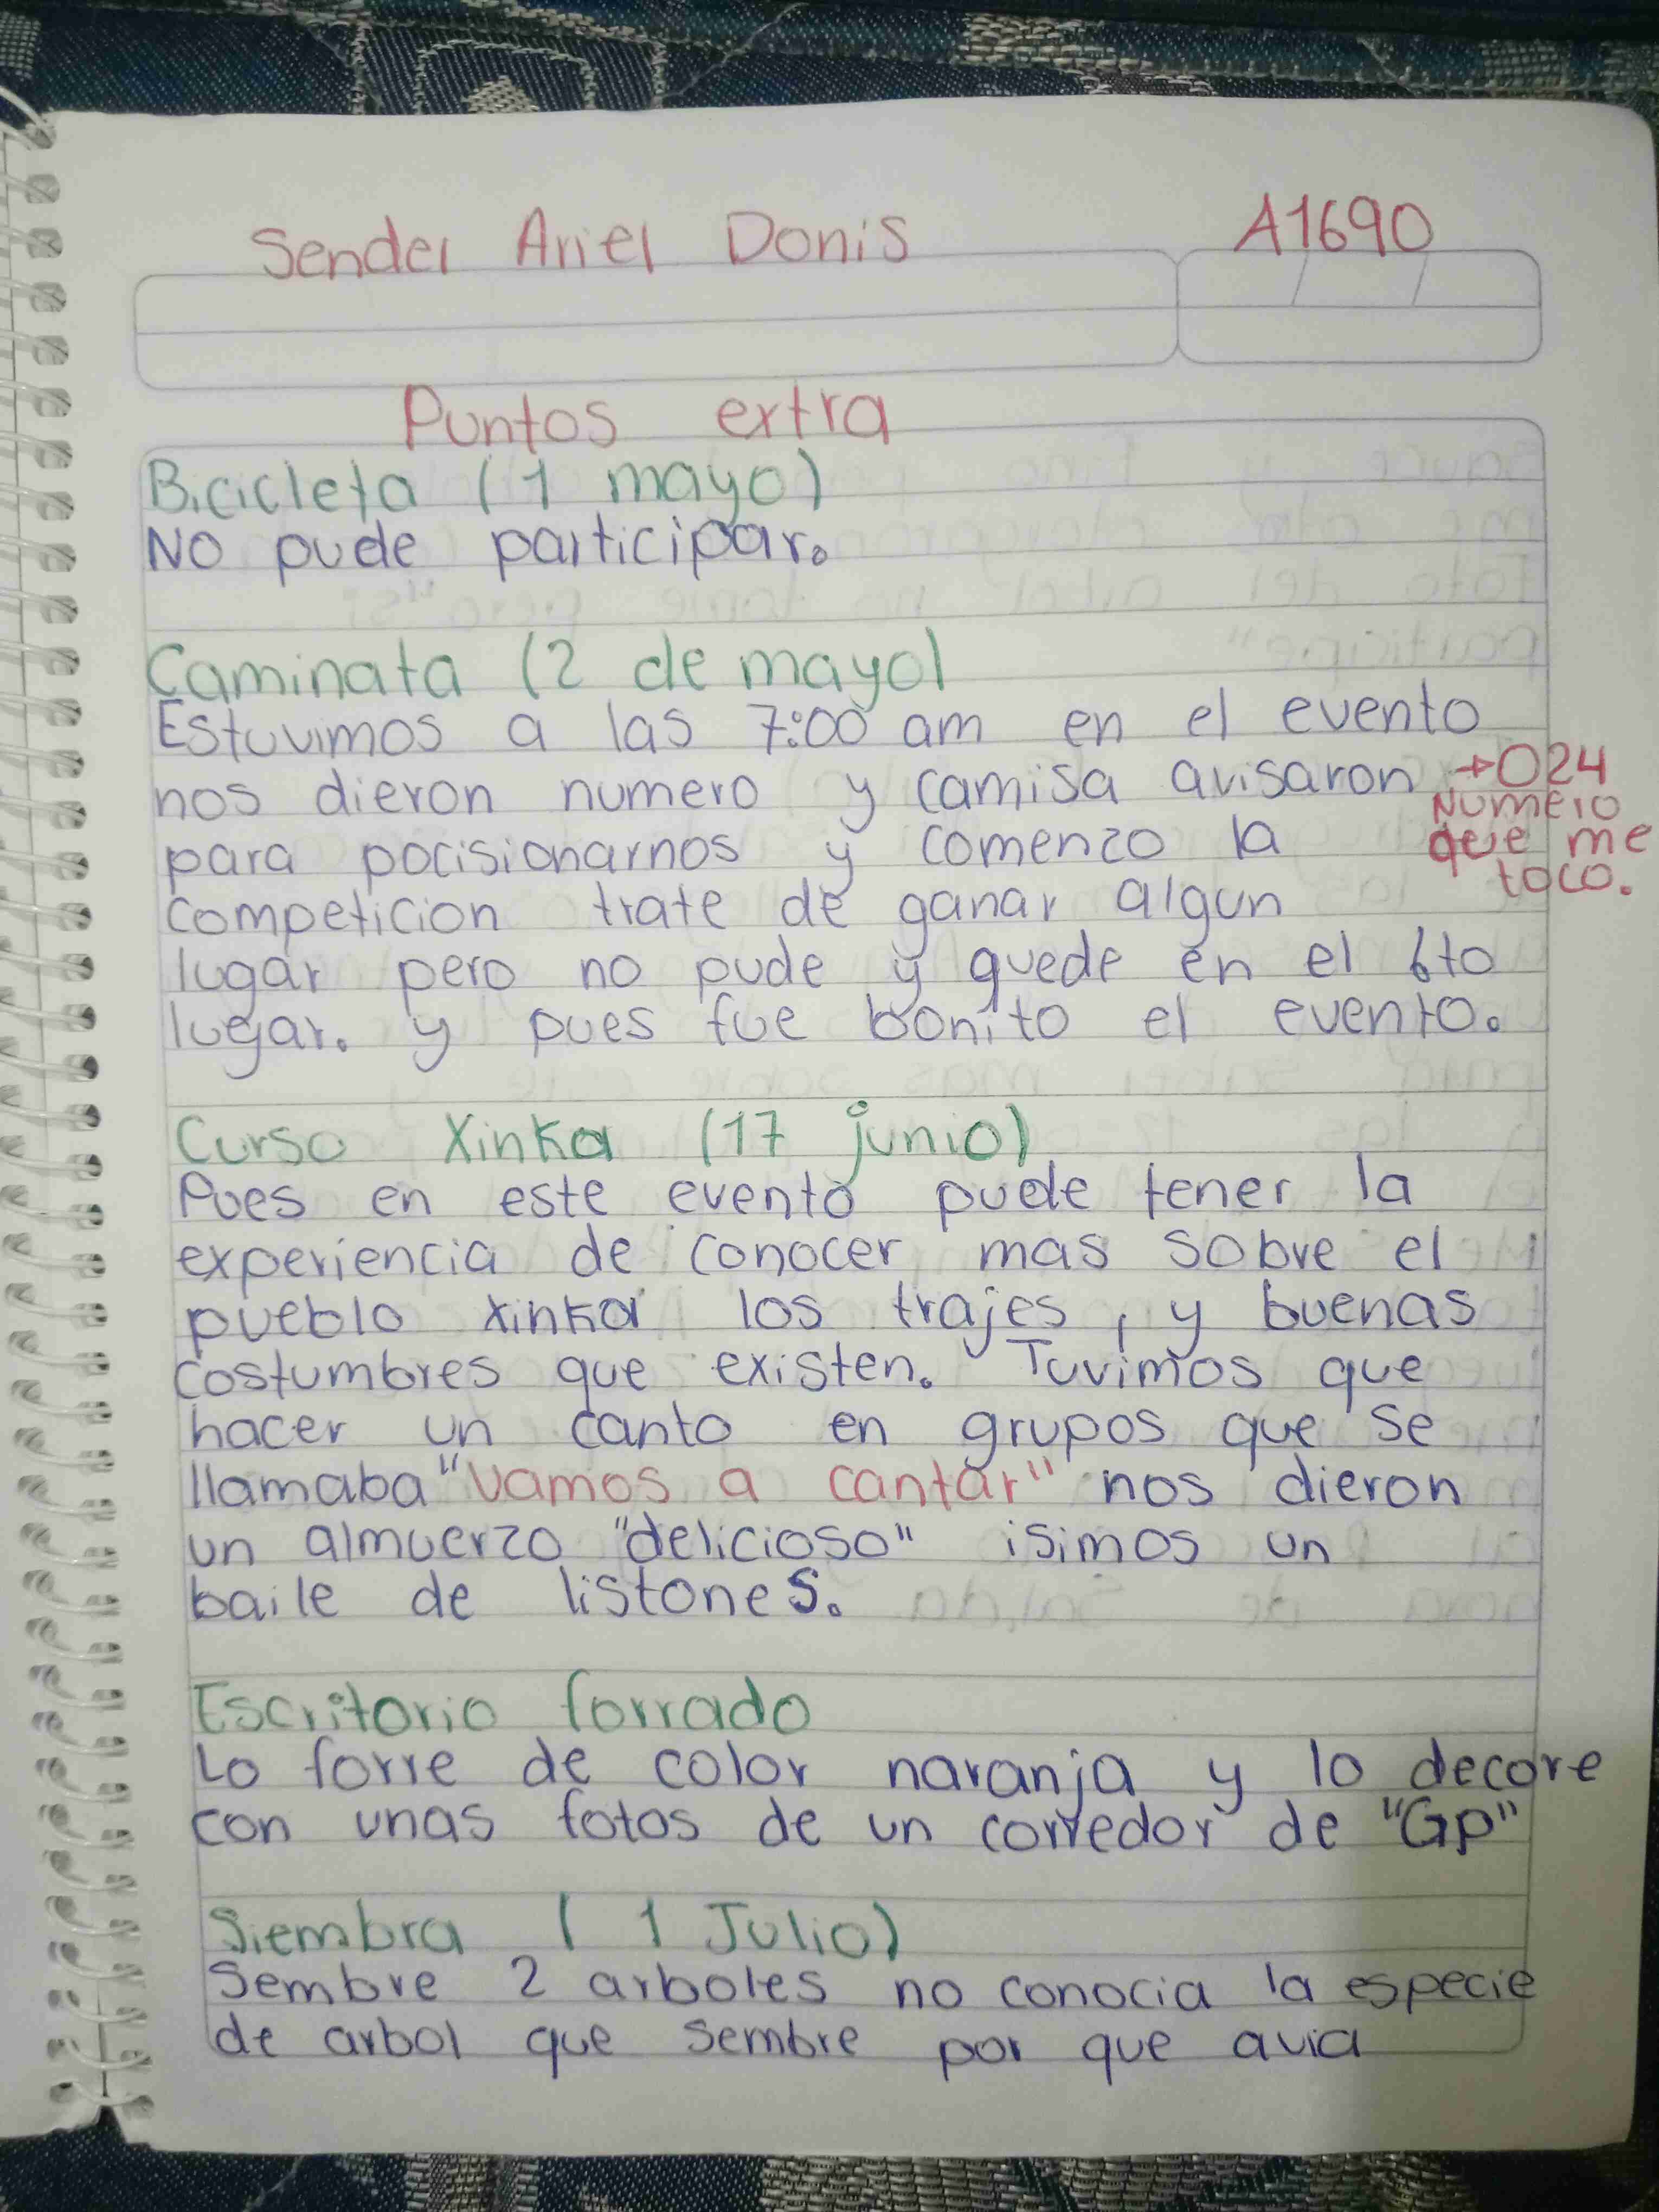 Sender Ariel Donis A1690
Puntos extra
Bicicleta (1 mayo)
No pude participar.
Caminata (2 de mayo)
Estuvimos a las 7:00 am en el evento
nos dieron numero y camisa avisaron → 024
Numero
que me
toco.
para pocisionarnos y comenzo la
competicion trate de ganar algun
lugar pero no pude y quede en el 6to
lugar. y pues fue bonito el evento.
Curso Xinka (17 junio)
Pues en este evento puede tener la
experiencia de conocer mas sobre el
pueblo xinka los trajes, y buenas
costumbres que existen. Tuvimos que
hacer un canto en grupos que se
llamaba "vamos a cantar" nos dieron
un almuerzo "delicioso" isimos un
baile de listones.
Escritorio forrado
Lo forre de color naranja y lo decore
con unas fotos de un corredor de "GP"
Siembra (1 Julio)
Sembre 2 arboles no conocia la especie
de arbol que sembre por que avia